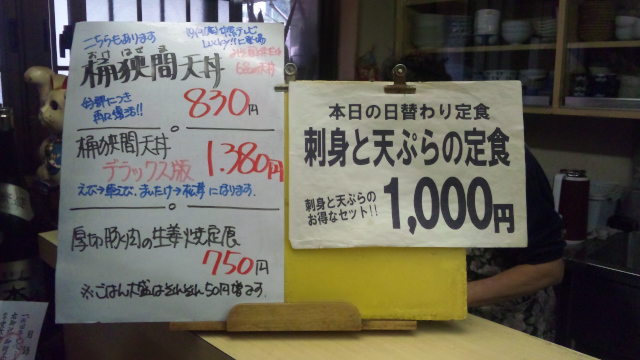 こちらもあります
おけはざま
桶狭間天丼
好評につき
再び復活!!
830円
桶狭間天丼
デラックス版
1.380円
えび→車えび、まいたけ→松茸になります。
厚切豚肉の生姜焼定食
750円
※ごはん大盛はぞれぞれ50円増です。
本日の日替わり定食
刺身と天ぷらの定食
刺身と天ぷらの
お得なセット!!
1,000円